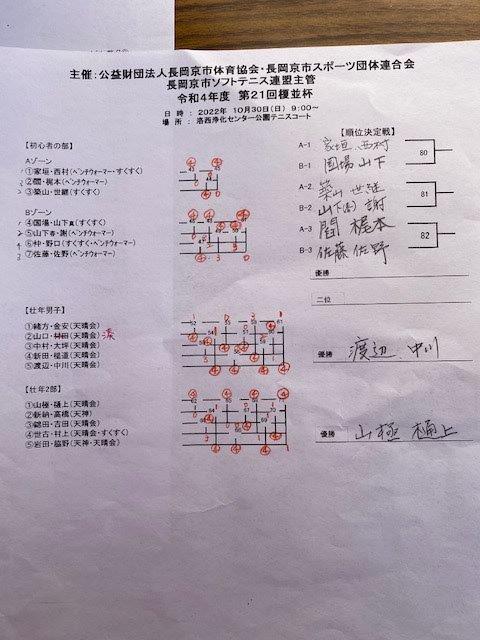 主催：公益財団法人長岡京市体育協会・長岡京市スポーツ団体連合会
長岡京市ソフトテニス連盟主管
令和4年度 第21回榎並杯
日 時： 2022年 10月30日(日) 9:00～
場 所： 洛西浄化センター公園テニスコート
【初心者の部】
Aゾーン
①家垣・西村(ベンチウォーマー・すくすく)
②閻・梶本(ベンチウォーマー)
③築山・世継(すくすく)
Bゾーン
④国場・山下真(すくすく)
⑤山下春・謝(ベンチウォーマー)
⑥仲・野口(すくすく・ベンチウォーマー)
⑦佐藤・佐野(ベンチウォーマー)
【順位決定戦】
A-1 家垣 西村
80
B-1 国場 山下
A-2 築山 世継
81
B-2 山下(春) 謝
A-3 閻 梶本
82
B-3 佐藤 佐野
優勝
二位
【壮年男子】
①緒方・金安(天晴会)
②山口・村田(天晴会)
③中村・大坪(天晴会)
④新田・槌道(天晴会)
⑤渡辺・中川(天晴会)
優勝 渡辺 中川
【壮年2部】
①山極・樋上(天晴会)
②新納・高橋(天神)
③錦田・古田(天晴会)
④世古・村上(天晴会・すくすく)
⑤岩田・脇野(天神・天晴会)
優勝 山極 樋上